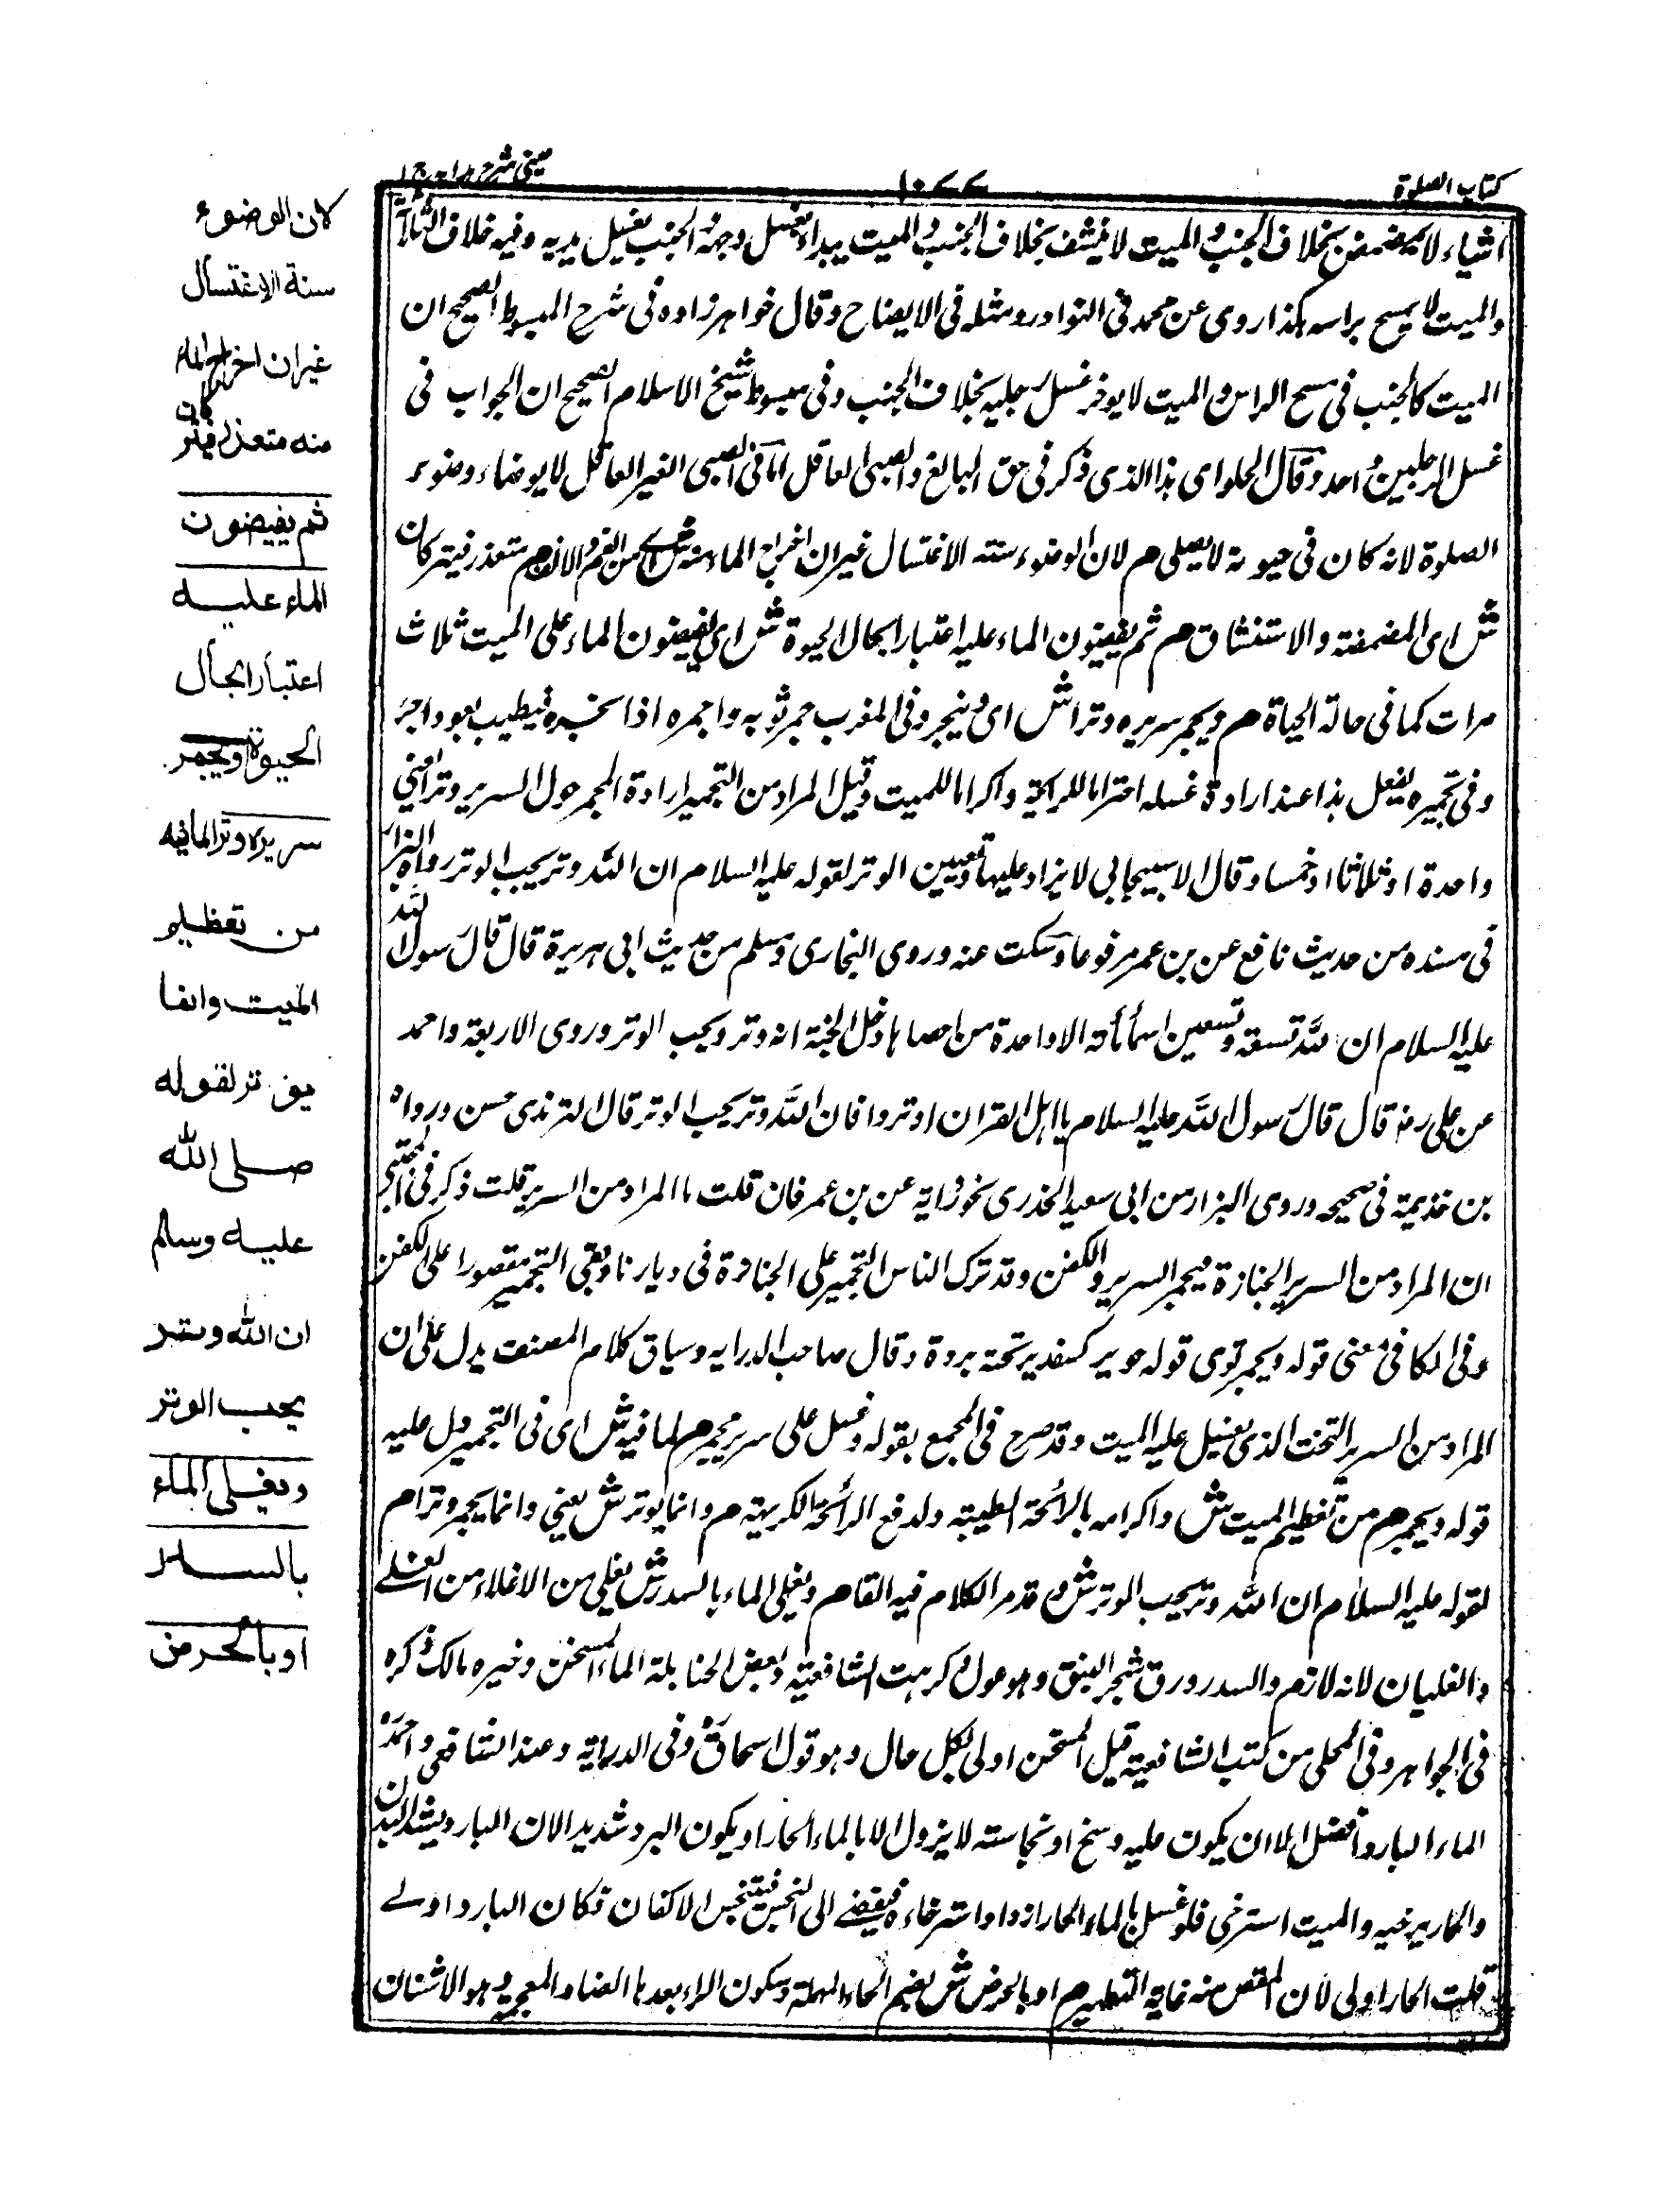 كتاب الصلوة
١٠٧٧
عينى شرح هدايه ج ١
اشياء لا يمضمض بخلاف الجنب و الميت لا ينشف بخلاف الجنب و الميت يبداء بغسل وجهه و الجنب بغسل يديه وفيه خلاف الثلاثة
والميت لا يمسح براسه هكذا روى عن محمد فى النوادر ومثله فى الايضاح وقال خواهرزاده فى شرح المبسوط الصحيح ان
الميت كالجنب فى مسح الراس و الميت لا يوخر غسل رجليه بخلاف الجنب وفى مبسوط شيخ الاسلام الصحيح ان الجواب فى
غسل الرجلين واحد وقال الحلواى هذا الذى ذكر فى حق البالغ والصبى العاقل اما فى الصبى الغير العاقل لا يوضاء وضوء
الصلوة لانه كان فى حيوته لا يصلى م لان الوضوء سنته الاغتسال غير ان اخراج الماء منه ش اى من الفم و الانف م متعذر فيتركان
ش اى المضمضة والاستنشاق م ثم يفيضون الماء عليه اعتبارا بحال الحيوة ش اى يفيضون الماء على الميت ثلاث
مرات كما فى حالة الحياة م ويجمر سريره وترا ش اى ويبخر وفى المغرب جمر ثوبه واجمره اذا بخره فيطيب بعود اجز
وفى تجميره يفعل هذا عند ارادة غسله احتراما للرائحة واكراما للميت وقيل المراد من التجمير ارادة المجمر حول السرير وترا يعنى
واحدة او ثلاثا او خمسا وقال الاسبيجابى لا يزاد عليها وتعيين الوتر لقوله عليه السلام ان الله وتر يحب الوتر رواه البزار
فى مسنده من حديث نافع عن بن عمر مرفوعا وسكت عنه وروى البخارى ومسلم من حديث ابى هريرة قال قال رسول الله
عليه السلام ان لله تسعة وتسعين اسما مأته الا واحدة من احصاها دخل الجنة انه وتر ويحب الوتر وروى الاربعة واحمد
عن على رض قال قال رسول الله عليه السلام يا اهل القران اوتروا فان الله وتر يحب الوتر قال الترمذى حسن ورواه
بن خذيمة فى صحيحه وروى البزار من ابى سعيد الخدرى نحو رواية عن بن عمر فان قلت ما المراد من السرير قلت ذكر فى المجتبى
ان المراد من السرير الجنازة فيجمر السرير والكفن وقد ترك الناس التجمير على الجنازة فى ديارنا وبقى التجمير مقصورا على الكفن
وفى الكافى معنى قوله ويجمر قوى قوله سرير كسفدير تحته بردة وقال صاحب الدرايه وسياق كلام المصنف يدل على ان
المراد من السرير التحت الذى يغسل عليه الميت وقد صرح فى المجمع بقوله وغسل على سرير مجمر م لما فيه ش اى فى التجمير دل عليه
قوله ويجمر م من تعظيم الميت ش واكرامه بالرائحة الطيبته ولدفع الرائحة الكريهة م وانما يوتر ش يعنى وانما يجمر وترا م
لقوله عليه السلام ان الله وتر يحب الوتر ش وقد مر الكلام فيه القام ويغلى الماء بالسدر ش يغلى من الاغلاء من الغلى
والغليان لانه لازم والسدر ورق شجر النبق وهو معول وكرهت الشافعية وبعض الحنابلة الماء المسخن وخيره مالك ذكره
فى الجواهر وفى المحلى من كتب الشافعية قيل المسخن اولى بكل حال وهو قول اسحاق وفى الدراية وعند الشافعى واحمد
الماء البارد افضل الا ان يكون عليه وسخ او نجاسته لا يزول الا بالماء الحار او يكون البرد شديدا لان البارد يشد البدن
والحار يرخيه والميت استرخى فلو غسل بالماء الحار ازداد استرخاءه فيفضى الى النجس فيتنجس الاكفان فكان البارد اولے
قلت الحار اولى لان المقصد منه غاية التطهير م او بالحرض ش بضم الحاء المهملة وسكون الراء بعدها الضاد المعجمة وهو الاشنان
كان الوضوء
سنة الاغتسال
غير ان اخراج الماء
منه متعذر فيتركان
ثم يفيضون
الماء عليه
اعتبارا بحال
الحيوة ويجمر
سريره وترا لما فيه
من تعظيم
الميت وانما
يوتر لقوله
صلى الله
عليه وسلم
ان الله وتر
يحب الوتر
ويغلى الماء
بالسدر
او بالحرض